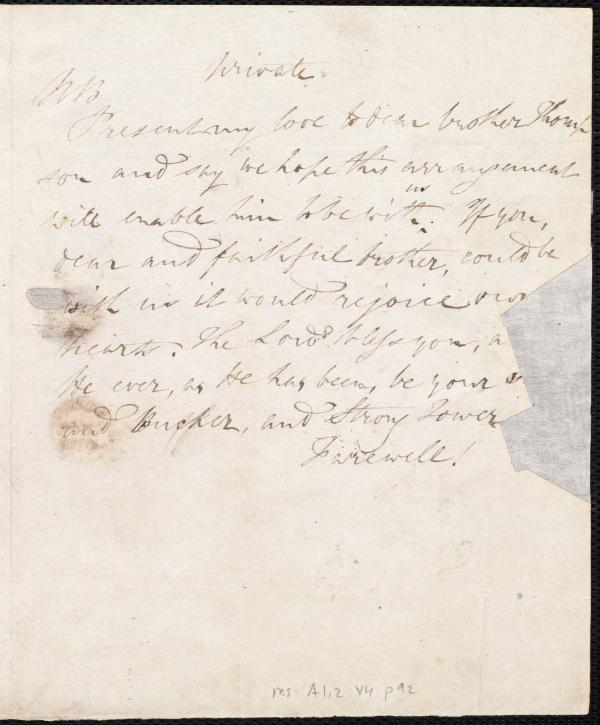 Private.
NB
Present my love to dear brother Thomp
son and say we hope this arrangement
will enable him to be with us. If you,
dear and faithful brother, could be
with us it would rejoice our
hearts. The Lord bless you, a
He ever, as He has been, be your s
and Buckler, and Strong Tower
Farewell!
ms A.1.2 V4 p92